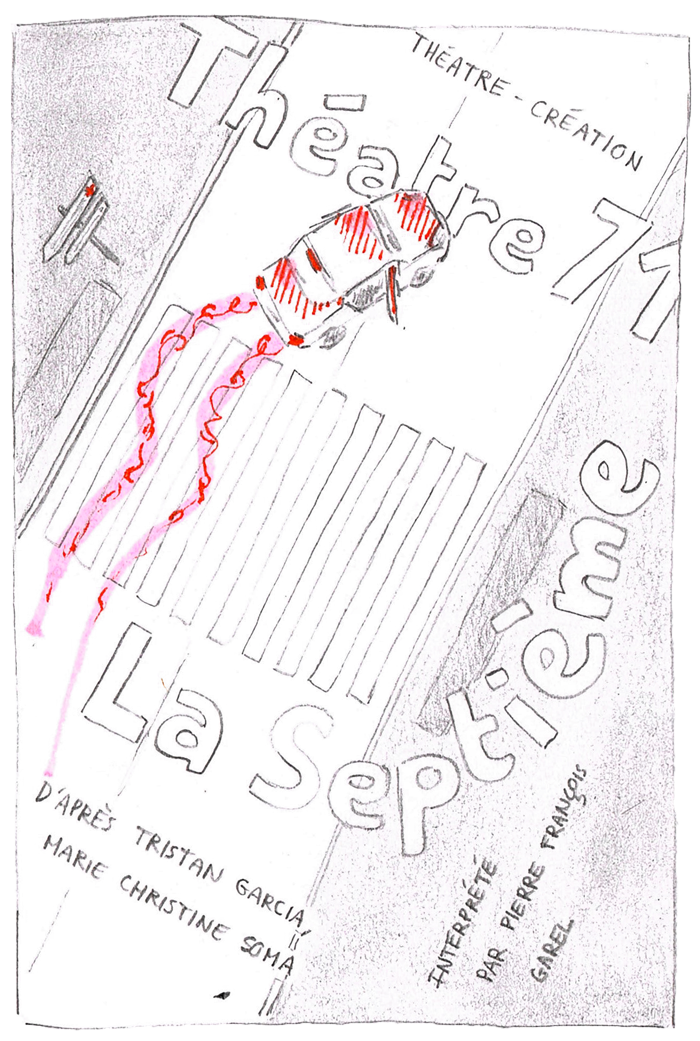 THÉATRE - CRÉATION
Théatre 71
La Septiéme
D'APRÈS TRISTAN GARCIA,
MARIE CHRISTINE SOMA
INTERPRÉTÉ
PAR PIERRE FRANÇOIS
GAREL